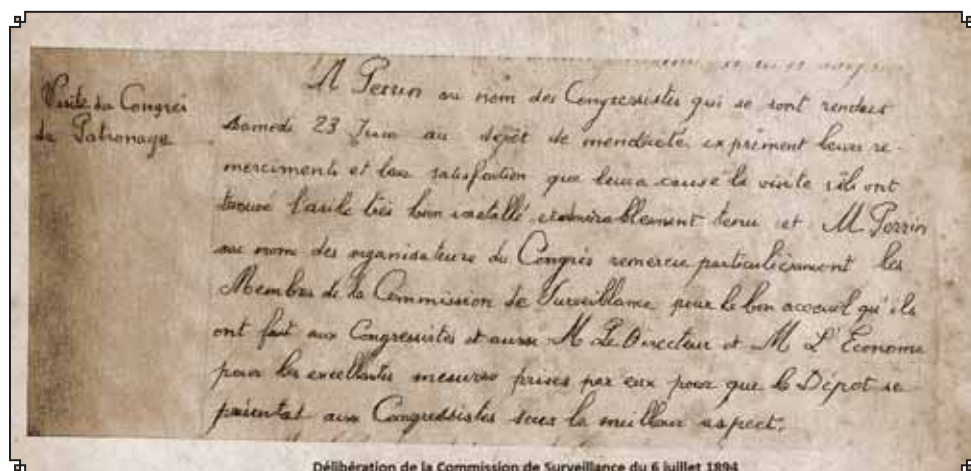 Visite du Congrès
du Patronage
M Perrin au nom des Congressistes qui se sont rendus
Samedi 23 Juin au dépôt de mendicité, expriment leurs re-
merciments et leur satisfaction que leur a causé la visite ils ont
trouvé l'asile très bien installé admirablement tenu et M Perrin
au nom des organisateurs du Congrès remercie particulièrement les
Membres de la Commission de Surveillance pour le bon accueil qu'ils
ont fait aux Congressistes et aussi M Le Directeur et M L'Econome
pour les excellentes mesures prises par eux pour que le Dépot se
présentat aux Congressistes sous le meilleur aspect.
Délibération de la Commission de Surveillance du 6 juillet 1894